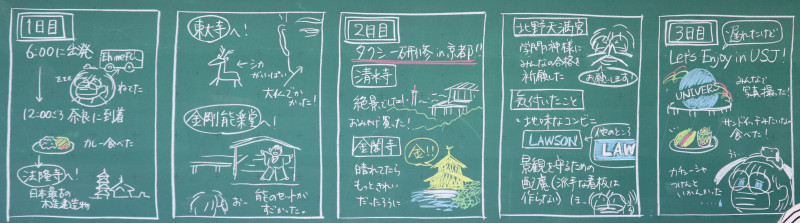 1日目
6:00に出発
EhimeFC
zzz
ねてた
12:00ごろ 奈良に到着
カレー食べた
法隆寺へ!
日本最古の
木造建造物
東大寺へ!
シカ
がいっぱい
大仏でか
かった!
金剛能楽堂へ!
おー
能のセットが
すごかった。
2日目
タクシー研修 in 京都!!
清水寺
絶景でした!!
おみやげ買った!
金閣寺
金!!
晴れてたら
もっときれい
だったろうに
北野天満宮
学問の神様に
みんなの合格を
祈願した
お願いします!
気付いたこと
地味なコンビニ
LAWSON
他のところ
LAW
景観を守るための
配慮(派手な看板は
作らない) ほー
3日目
遅れたけど
Let's Enjoy in USJ!
UNIVERS
みんなで
写真撮った!
サンドイッチみたいなの
食べた!
カチューシャ
つけんと
いかんかった…